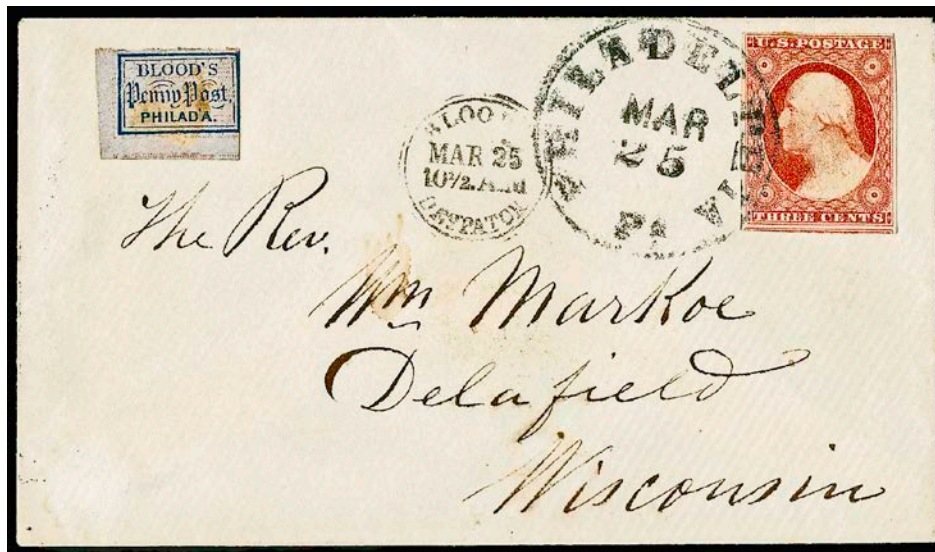 BLOOD'S
Penny Post,
PHILAD'A.
BLOOD'S
MAR 25
10½ A.M
DESPATCH
PHILADELPHIA
MAR
25
PA
U.S. POSTAGE
THREE CENTS
The Rev.
Wm Markoe
Delafield
Wisconsin